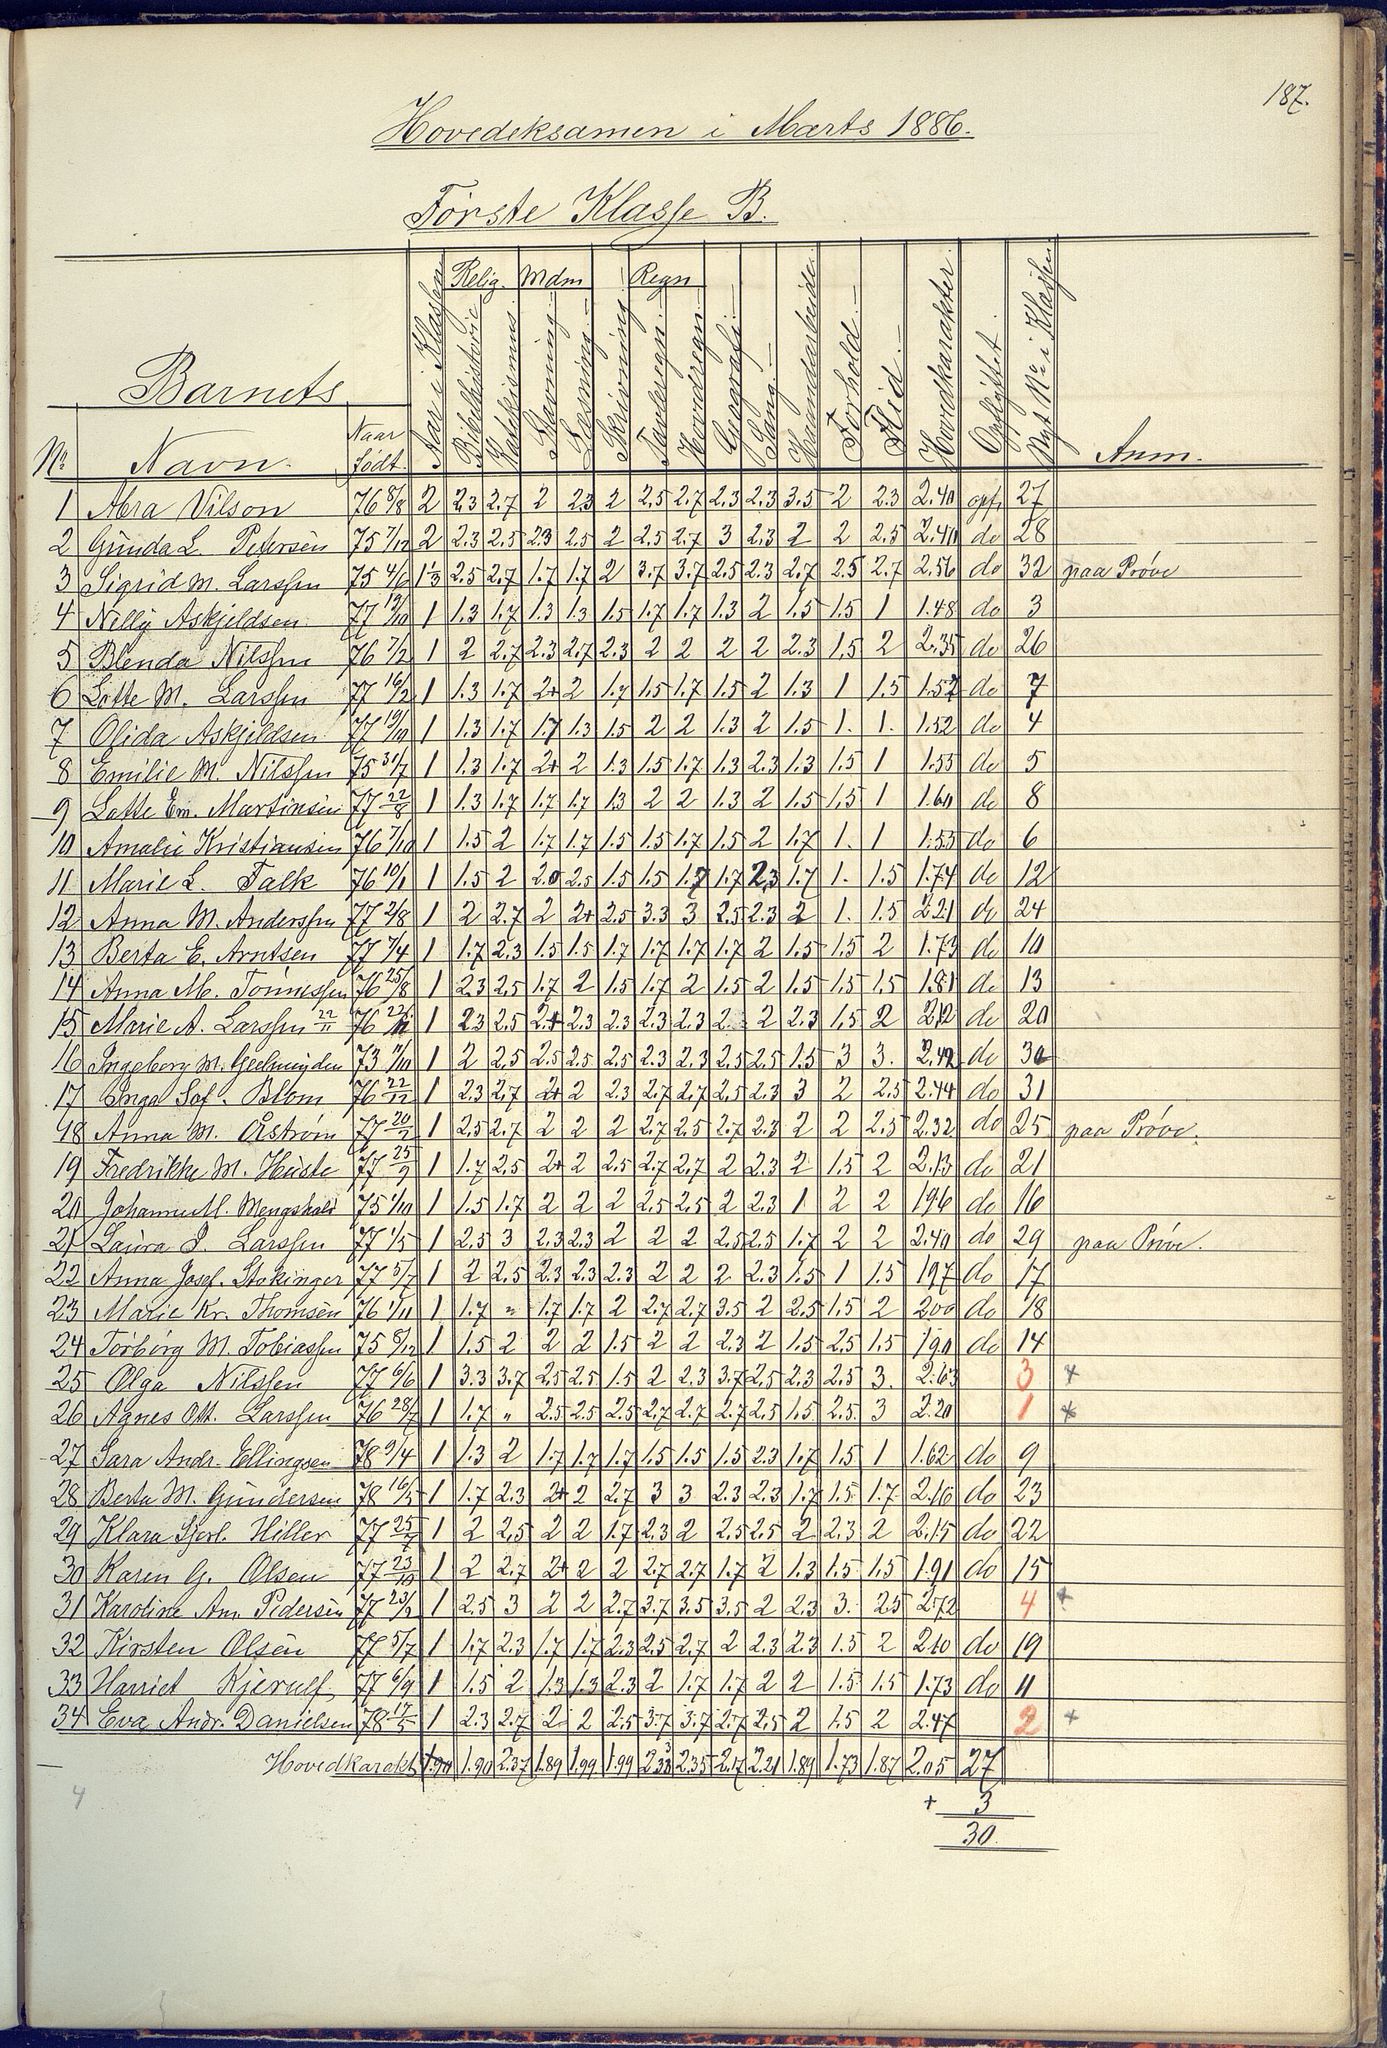 187.
Hovedeksamen i Marts 1886.
Første Klasse B.
Relig. Mdm Regn
Barnets
No Navn. Naar født. Aar i Klassen Bibelhistorie Katekismus Stavning Læsning Skrivning Tavleregn. Hovedregn. Geografi Sang. Haandarbeide. Forhold. Flid. Hovedkarakter. Opflyttet. Nyt No i Klassen. Anm.
1 Abra Vilson 76 8/8 2 2.3 2.7 2 2.3 2 2.5 2.7 2.3 2.3 3.5 2 2.3 2.40 opfl. 27
2 Gunda L. Petersen 75 7/12 2 2.3 2.5 2.3 2.5 2 2.5 2.7 3 2.3 2 2 2.5 2.40 do 28
3 Sigrid M. Larssen 75 4/6 1 1/3 2.5 2.7 1.7 1.7 2 3.7 3.7 2.5 2.3 2.7 2.5 2.7 2.56 do 32 paa Prøve
4 Nelly Askjeldsen 77 19/10 1 1.3 1.7 1.3 1.3 1.5 1.7 1.7 1.3 2 1.5 1.5 1 1.48 do 3
5 Blenda Nilssen 76 7/2 1 2 2.7 2.3 2.7 2.3 2 2 2 2 2.3 1.5 2 2.35 do 26
6 Lotte M. Larssen 77 16/2 1 1.3 1.7 2+ 2 1.7 1.5 1.7 1.5 2 1.3 1 1.5 1.52 do 7
7 Olida Askjeldsen 77 19/10 1 1.3 1.7 1.7 1.3 1.5 2 2 1.3 2 1.5 1. 1. 1.52 do 4
8 Emilie M. Nilssen 75 31/7 1 1.3 1.7 2+ 2 1.3 1.5 1.7 1.3 2.3 1.3 1.5 1 1.55 do 5
9 Lotte Em. Martinsen 77 22/8 1 1.3 1.7 1.7 1.7 1.3 2 2 1.3 2 1.5 1.5 1 1.60 do 8
10 Amalie Kristiansen 76 7/10 1 1.5 2 1.7 1.7 1.5 1.5 1.7 1.5 2 1.7 1. 1 1.55 do 6
11 Marie L. Falk 76 10/1 1 1.5 2 2.0 2.5 1.5 1.5 1.7 1.7 2.3 1.7 1. 1.5 1.74 do 12
12 Anna M. Anderssen 77 2/8 1 2 2.7 2 2+ 2.5 3.3 3 2.5 2.3 2 1. 1.5 2.21 do 24
13 Berta E. Arntsen 77 7/4 1 1.7 2.3 1.5 1.5 1.7 1.7 1.7 1.7 2 1.5 1.5 2 1.73 do 10
14 Anna M. Tønnessen 76 25/8 1 2.3 2.5 1.7 2 1.5 1.7 2 1.5 2 1.5 1.5 1.5 1.81 do 13
15 Marie A. Larssen 22/11 76 22/11 1 2.3 2.5 2+ 2.3 2.3 2.3 2.3 2. 2 2.3 1.5 2 2.12 do 20
16 Ingeborg M. Geelmuyden 73 /10 1 2 2.5 2.5 2.5 2.5 2.3 2.3 2.5 2.5 1.5 3 3. 2.42 do 30
17 Inga Sof. Blom 76 22/12 1 2.3 2.7 2+ 2 2.3 2.7 2.7 2.5 2.3 3 2 2.5 2.44 do 31
18 Anna M. Åstrøm 77 20/2 1 2.5 2.7 2 2 2 2.7 2.5 2.7 2.3 2 2 2.5 2.32 do 25 paa Prøve.
19 Fredrikke M. Huste 77 25/9 1 1.7 2.5 2+ 2 2.5 2.7 2.7 2 2.3 2 1.5 2 2.13 do 21
20 Johanne M. Mengshold 75 1/10 1 1.5 1.7 2 2 2 2.5 2.5 2 2.3 1 2 2 1.96 do 16
21 Laura J. Larssen 77 1/5 1 2.5 3 2.3 2.3 2 2 2 2.5 2.5 1.7 2 2 2.40 do 29 paa Prøve.
22 Anna Josef. Stokinger 77 5/7 1 2 2.5 2.3 2.3 2.3 2 2 2 2.3 1.5 1 1.5 1.97 do 17
23 Marie Kr. Thomsen 76 1/11 1 1.7 " 1.7 1.7 2 2.7 2.7 3.5 2 2.5 1.5 2 2.00 do 18
24 Torborg M. Tobiassen 75 8/12 1 1.5 2 2 2 1.5 2 2 2.3 2 1.5 2.5 1.5 1.90 do 14
25 Olga Nilssen 77 6/6 1 3.3 3.7 2.5 2.5 1.5 2 2.3 3.7 2.5 2.3 2.5 3. 2.63 3 +
26 Agnes Ott. Larssen 76 28/7 1 1.7 " 2.5 2.5 2.5 2.7 2.7 2.7 2.5 1.5 2.5 3 2.20 1 +
27 Sara Andr. Ellingsen 78 9/4 1 1.3 2 1.7 1.7 1.7 1.5 1.5 1.5 2.3 1.7 1.5 1 1.62 do 9
28 Berta M. Gundersen 78 16/5 1 1.7 2.3 2+ 2 2.7 3 3 2.3 2.3 1.7 1.5 1.7 2.16 do 23
29 Klara Sjerl. Hiller 77 25/7 1 2 2.5 2 2 1.7 2.3 2 2.5 2.5 2 2.3 2 2.15 do 22
30 Karen G. Olsen 77 23/10 1 2 2.7 2+ 2 2 2.7 2.7 1.7 2 1.3 1.5 1.5 1.91 do 15
31 Karoline Am. Pedersen 77 23/2 1 2.5 3 2 2 2.7 3.7 3.5 3.5 2 2.3 3. 2.5 2.72 4 +
32 Kirsten Olsen 77 5/7 1 1.7 2.3 1.7 1.7 2.3 2.5 2.7 2 2.3 2.3 1.5 2 2.10 do 19
33 Harriet Kjerulf 77 6/9 1 1.5 2 1.3 1.3 2.3 2 1.7 1.7 2 2 1.5 1.5 1.73 do 11
34 Eva Andr. Danielsen 78 17/5 1 2.3 2.7 2 2 2.5 3.7 3.7 2.7 2.5 2 1.5 2 2.47 2 +
Hovedkarakt. 1.90 1.90 2.37 1.89 1.99 1.99 2.33 2.35 2.17 2.21 1.89 1.73 1.87 2.05 27
4 + 3
30.